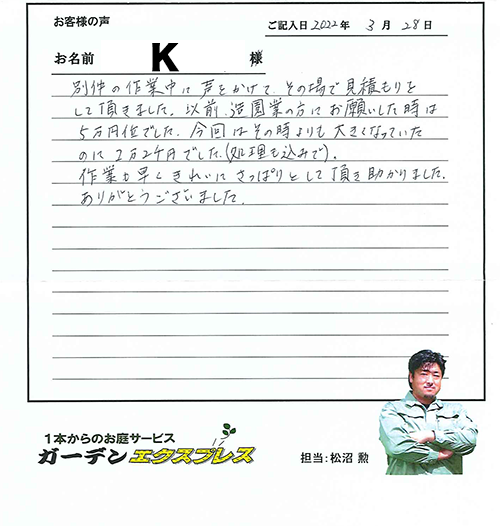 お客様の声
ご記入日 2022年 3月 28日
お名前 K 様
別件の作業中に声をかけて、その場で見積もりを
して頂きました。以前、造園業の方にお願いした時は
5万円位でした。今回はその時よりも大きくなっていた
のに1万2千円でした。(処理も込みで)。
作業も早くきれいにさっぱりとして頂き助かりました。
ありがとうございました。
1本からのお庭サービス
ガーデンエクスプレス
担当:松沼 勲